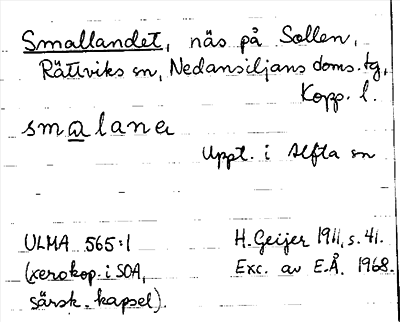 Smallandet, näs på Sollen,
Rättviks sn, Nedansiljans doms. tg,
Kopp. l.
smalane
Uppt. i Alfta sn
ULMA 565:1
(xerokop. i SOA,
särsk. kapsel).
H. Geijer 1911, s. 41.
Exc. av E.Å. 1968.